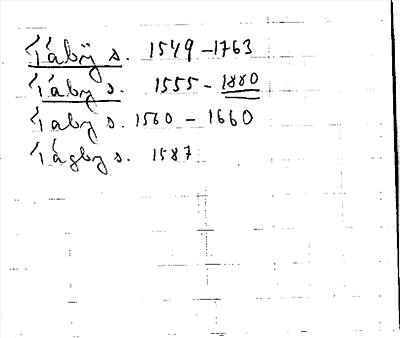 Täby s. 1549-1763
Täby s. 1555-1880
Täby s. 1560-1660
Tägby s. 1587